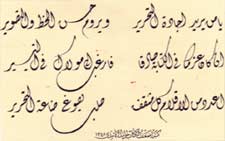 يا من يريد اجادة التحرير ويروم حسن الخط والتصوير
ان كان عزمك في الكتابة صادقا فارغب الى مولاك في التيسير
اعدد من الاقلام كل مثقف صلب يصوغ صناعة التحبير